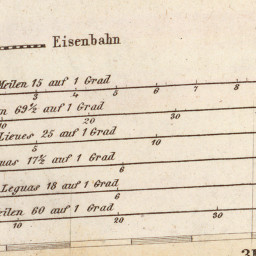 Eisenbahn
Meilen 15 auf 1 Grad
3 4 5 6 7 8
69½ auf 1 Grad
10 20 30
Lieues 25 auf 1 Grad
5 10
17½ auf 1 Grad
6
Leguas 18 auf 1 Grad
6
60 auf 1 Grad
10 20 30